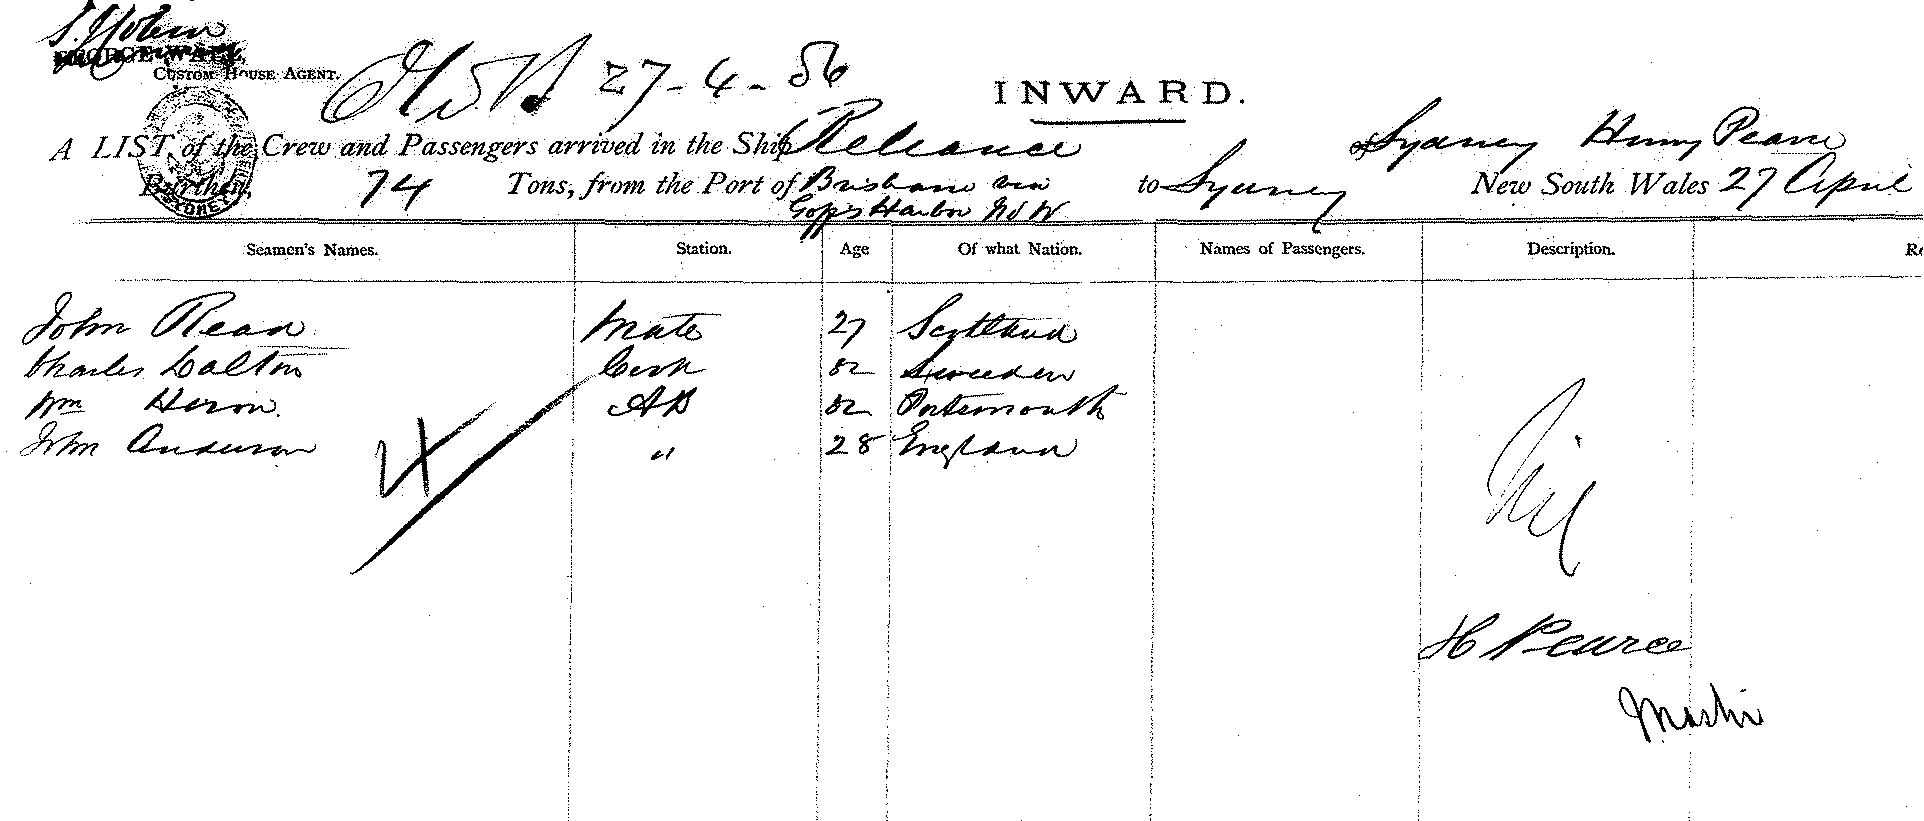 Custom House Agent.
27-4-86
INWARD.
A LIST of the Crew and Passengers arrived in the Ship Reliance of Sydney Henry Pearce
Burthen, 74 Tons, from the Port of Brisbane via to Sydney New South Wales 27 April
Harbor NSW
Seamen's Names. Station. Age Of what Nation. Names of Passengers. Description.
John Read Mate 27 Scotland
Charles Dalton Cook 82 Sweden
Wm Heron AB 82 Portsmouth
John Anderson " 28 England
4
Nil
H Pearce